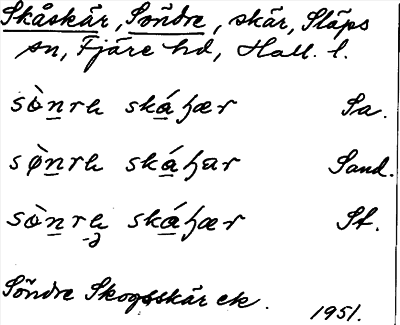 Skåskär, Söndre, skär, Släps
sn, Fjäre hd, Hall. l.
sò̀nrɐ skáʃær Sa.
sø̀nrɐ skáʃar Sand.
sò̀nrɐ skáʃær St.
Söndre Skogsskär ek.
1951.